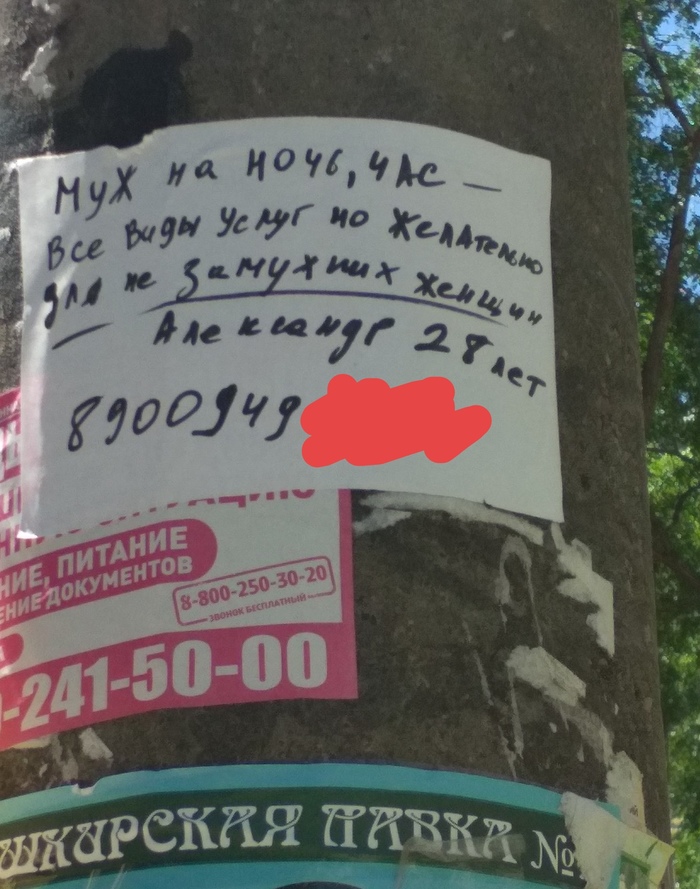 Муж на ночь, час —
Все виды услуг но желательно
для не замужних женщин
— Александр 28 лет
8900949
НИЕ, ПИТАНИЕ
ЕНИЕ ДОКУМЕНТОВ
8-800-250-30-20
ЗВОНОК БЕСПЛАТНЫЙ
-241-50-00
ШКИРСКАЯ ЛАВКА №